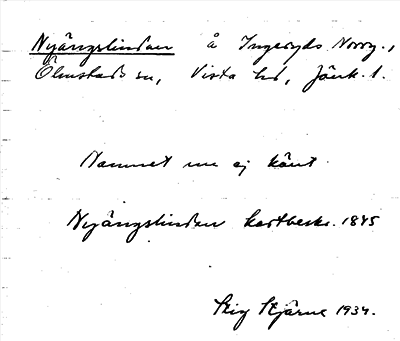 Nyängslinden å Ingeryds Norrg.,
Ölmstads sn, Vista hd, Jönk. l.
Namnet nu ej känt.
Nyängslinden kartbeskr. 1845
Stig Stjärne 1934.